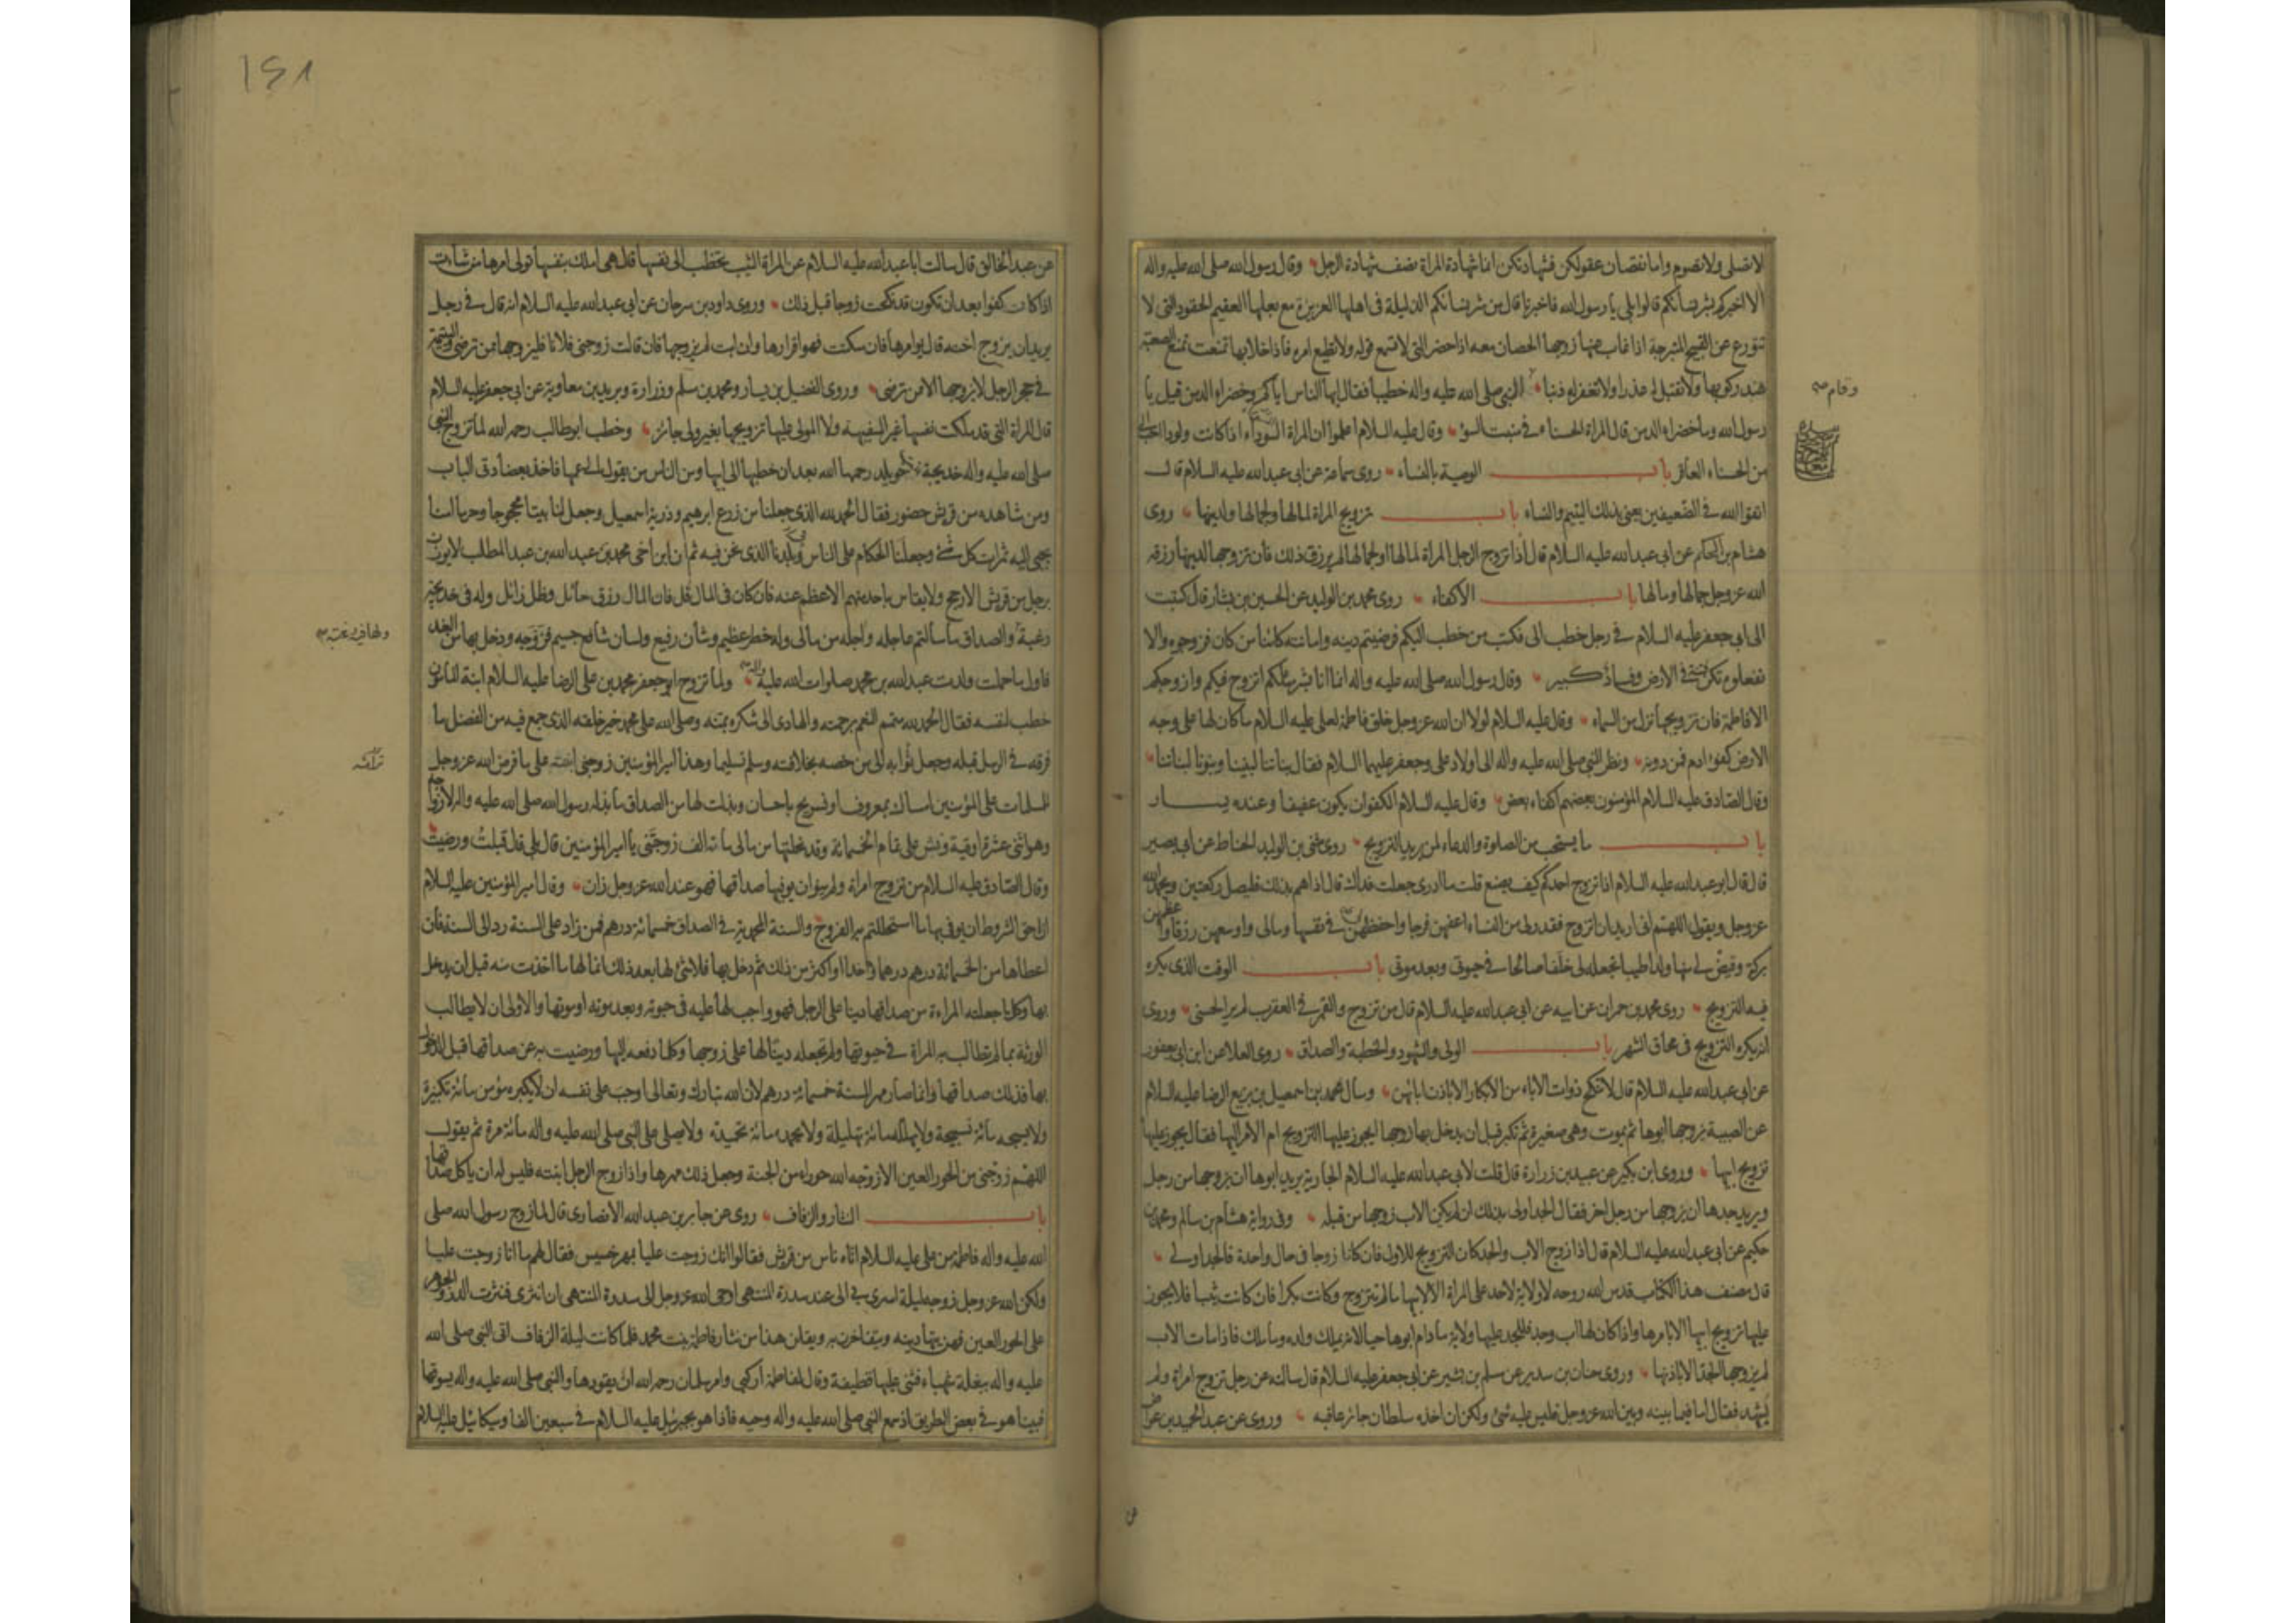 لا تصلى ولا تصوم واما نقصان عقولكن فشهادتكن انما شهادة المراة نصف شهادة الرجل وقال رسول الله صلى الله عليه واله
الا اخبركم بشر نسائكم قالوا بلى يا رسول الله فاخبرنا قال من شر نسائكم الذليلة فى اهلها العزيزة مع بعلها العقيم الحقود التى لا
تتورع عن القبيح المتبرجة اذا غاب عنها زوجها الحصان معه اذا حضر التى لا تسمع قوله ولا تطيع امره فاذا خلا بها تمنعت تمنع الصعبة
عند ركوبها ولا تقبل له عذرا ولا تغفر له ذنبا النبى صلى الله عليه واله خطيبا فقال ايها الناس اياكم وخضراء الدمن قيل يا
وقام صح
رسول الله وما خضراء الدمن قال المراة الحسناء فى منبت السوء وقال عليه السلام اعلموا ان المراة السوداء اذا كانت ولودا احب الى
من الحسناء العاقر باب الوصية بالنساء روى سماعة عن ابى عبد الله عليه السلام قال
اتقوا الله فى الضعيفين يعنى بذلك اليتيم والنساء باب تزويج المراة لمالها ولجمالها ولدينها روى
هشام بن الحكم عن ابى عبد الله عليه السلام قال اذا تزوج الرجل المراة لمالها او لجمالها لم يرزق ذلك فان تزوجها لدينها رزقه
الله عز وجل جمالها ومالها باب الاكفاء روى محمد بن الوليد عن الحسين بن بشار قال كتبت
الى ابى جعفر عليه السلام فى رجل خطب الى فكتب من خطب اليكم فرضيتم دينه وامانته كائنا من كان فزوجوه والا
تفعلوه تكن فتنة فى الارض وفساد كبير وقال رسول الله صلى الله عليه واله انما انا بشر مثلكم اتزوج فيكم وازوجكم
الا فاطمة فان تزويجها نزل من السماء وقال عليه السلام لولا ان الله عز وجل خلق فاطمة لعلى عليه السلام ما كان لها على وجه
الارض كفوا ادم فمن دونه ونظر النبى صلى الله عليه واله الى اولاد على وجعفر عليهما السلام فقال بناتنا لبنينا وبنونا لبناتنا
وقال الصادق عليه السلام المؤمنون بعضهم اكفاء بعض وقال عليه السلام الكفو ان يكون عفيفا وعنده يسار
باب ما يستحب من الصلوة والدعاء لمن يريد التزويج روى مثنى بن الوليد الحناط عن ابى بصير
قال قال ابو عبد الله عليه السلام اذا تزوج احدكم كيف يصنع قلت ما ادرى جعلت فداك قال اذا هم بذلك فليصل ركعتين ويحمد الله
عز وجل ويقول اللهم انى اريد ان اتزوج فقدر لى من النساء اعفهن فرجا واحفظهن لى فى نفسها ومالى واوسعهن رزقا واعظمهن
بركة وقيض لى منها ولدا طيبا تجعله لى خلفا صالحا فى حيوتى وبعد موتى باب الوقت الذى يكره
فيه التزويج روى محمد بن حمران عن ابيه عن ابى عبد الله عليه السلام قال من تزوج والقمر فى العقرب لم ير الحسنى وروى
انه يكره التزويج فى محاق الشهر باب الولى والشهود والخطبة والصداق روى العلا عن ابن ابى يعفور
عن ابى عبد الله عليه السلام قال لا تنكح ذوات الاباء من الابكار الا باذن ابائهن وسال محمد بن اسمعيل بن بزيع الرضا عليه السلام
عن الصبية يزوجها ابوها ثم يموت وهى صغيرة ثم تكبر قبل ان يدخل بها زوجها ايجوز عليها التزويج ام الامر اليها فقال يجوز عليها
تزويج ابيها وروى ابن بكير عن عبيد بن زرارة قال قلت لابى عبد الله عليه السلام الجارية يريد ابوها ان يزوجها من رجل
ويريد جدها ان يزوجها من رجل اخر فقال الجد اولى بذلك ان لم يكن الاب زوجها من قبله وفى رواية هشام بن سالم ومحمد بن
حكيم عن ابى عبد الله عليه السلام قال اذا زوج الاب والجد كان التزويج للاول فان كانا زوجا فى حال واحدة فالجد اولى
قال مصنف هذا الكتاب قدس الله روحه لا ولاية لاحد على المراة الا لابيها ما لم تتزوج وكانت بكرا فان كانت ثيبا فلا يجوز
عليها تزويج ابيها الا بامرها واذا كان لها اب وجد فللجد عليها ولاية ما دام ابوها حيا لانه يملك ولده وما ملك فاذا مات الاب
لم يزوجها الجد الا باذنها وروى حنان بن سدير عن مسلم بن بشير عن ابى جعفر عليه السلام قال سالته عن رجل تزوج امراة ولم
يشهد فقال اما فيما بينه وبين الله عز وجل فليس عليه شئ ولكن ان اخذه سلطان جائر عاقبه وروى عن عبد الحميد بن عواض
عن
١٤٨
عن عبد الخالق قال سالت ابا عبد الله عليه السلام عن المراة الثيب تخطب الى نفسها قال هى املك بنفسها تولى امرها من شاءت
اذا كان كفوا بعد ان تكون قد نكحت زوجا قبل ذلك وروى داود بن سرحان عن ابى عبد الله عليه السلام انه قال فى رجل
يريد ان يزوج اخته قال يوامرها فان سكتت فهو اقرارها وان ابت لم يزوجها فان قالت زوجنى فلانا فليزوجها ممن ترضى واليتيمة
فى حجر الرجل لا يزوجها الا ممن ترضى وروى الفضيل بن يسار ومحمد بن مسلم وزرارة وبريد بن معاوية عن ابى جعفر عليه السلام
قال المراة التى قد ملكت نفسها غير السفيهة ولا المولى عليها تزويجها بغير ولى جائز وخطب ابو طالب رحمه الله لما تزوج النبى
صلى الله عليه واله خديجة بنت خويلد رحمها الله بعد ان خطبها الى ابيها ومن الناس من يقول الى عمها فاخذ بعضادتى الباب
ومن شاهده من قريش حضور فقال الحمد لله الذى جعلنا من زرع ابرهيم وذرية اسمعيل وجعل لنا بيتا محجوجا وحرما امنا
يجبى اليه ثمرات كل شئ وجعلنا الحكام على الناس فى بلدنا الذى نحن فيه ثم ان ابن اخى محمد بن عبد الله بن عبد المطلب لا يوزن
برجل من قريش الا رجح ولا يقاس باحد منهم الا عظم عنه فان كان فى المال قل فان المال رزق حائل وظل زائل وله فى خديجة
رغبة والصداق ما سالتم عاجله واجله من مالى وله خطر عظيم وشان رفيع ولسان شافع جسيم فزوجه ودخل بها من الغد
ولها فيه رغبة صح
فاول ما حملت ولدت عبد الله بن محمد صلوات الله عليه واله ولما تزوج ابو جعفر محمد بن على الرضا عليه السلام ابنة المامون
خطب لنفسه فقال الحمد لله متمم النعم برحمته والهادى الى شكره بمنه وصلى الله على محمد خير خلقه الذى جمع فيه من الفضل ما
فرقه فى الرسل قبله وجعل تراثه الى من خصه بخلافته وسلم تسليما وهذا امير المؤمنين زوجنى ابنته على ما فرض الله عز وجل
تراثه
للمسلمات على المؤمنين امساك بمعروف او تسريح باحسان وبذلت لها من الصداق ما بذله رسول الله صلى الله عليه واله لازواجه
وهو اثنتى عشرة اوقية ونش على تمام الخمسمائة وقد نحلتها من مالى مائة الف زوجتنى يا امير المؤمنين قال بلى قال قبلت ورضيت
وقال الصادق عليه السلام من تزوج امراة ولم ينو ان يوفيها صداقها فهو عند الله عز وجل زان وقال امير المؤمنين عليه السلام
ان احق الشروط ان يوفى بها ما استحللتم به الفروج والسنة المحمدية فى الصداق خمسمائة درهم فمن زاد على السنة رد الى السنة فان
اعطاها من الخمسمائة درهم درهما واحدا او اكثر من ذلك ثم دخل بها فلا شئ لها بعد ذلك انما لها ما اخذت منه قبل ان يدخل
بها وكلما جعلته المراءة من صداقها دينا على الرجل فهو واجب لها عليه فى حيوته وبعد موته او موتها والاولى ان لا يطالب
الورثة بما لم تطالب به المراة فى حيوتها ولم تجعله دينا لها على زوجها وكلما دفعه اليها ورضيت به عن صداقها قبل الدخول
بها فذلك صداقها وانما صار مهر السنة خمسمائة درهم لان الله تبارك وتعالى اوجب على نفسه ان لا يكبره مؤمن مائة تكبيرة
ولا يسبحه مائة تسبيحة ولا يهلله مائة تهليلة ولا يحمده مائة تحميدة ولا يصلى على النبى صلى الله عليه واله مائة مرة ثم يقول
اللهم زوجنى من الحور العين الا زوجه الله حوراء من الجنة وجعل ذلك مهرها واذا زوج الرجل ابنته فليس له ان ياكل صداقها
باب النثار والزفاف روى عن جابر بن عبد الله الانصارى قال لما زوج رسول الله صلى
الله عليه واله فاطمة من على عليه السلام اتاه ناس من قريش فقالوا انك زوجت عليا بمهر خسيس فقال لهم ما انا زوجت عليا
ولكن الله عز وجل زوجه ليلة اسرى بى الى عند سدرة المنتهى اوحى الله عز وجل الى سدرة المنتهى ان انثرى فنثرت الدر والجوهر
على الحور العين فهن يتهادينه ويتفاخرن به ويقلن هذا من نثار فاطمة بنت محمد فلما كانت ليلة الزفاف اتى النبى صلى الله
عليه واله ببغلة شهباء فثنى عليها قطيفة وقال لفاطمة اركبى وامر سلمان رحمه الله ان يقودها والنبى صلى الله عليه واله يسوقها
فبينا هو فى بعض الطريق اذ سمع النبى صلى الله عليه واله وجبة فاذا هو بجبرئيل عليه السلام فى سبعين الفا وميكائيل عليه السلام